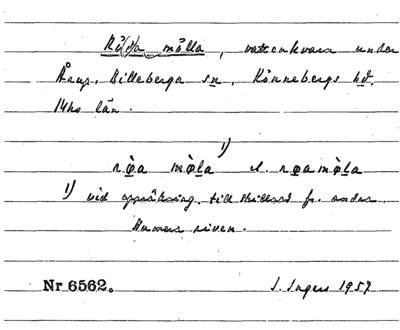 Rö(d)a mölla, vattenkvarn under
Årup, Billeberga sn, Rönnebergs hd.
Mhs län.
1)
rǫ̀a mø̀la el. rǫamø̀la
1) vid uppräkning till skillnad fr. andra.
Numera riven.
Nr 6562. I. Ingers 1957